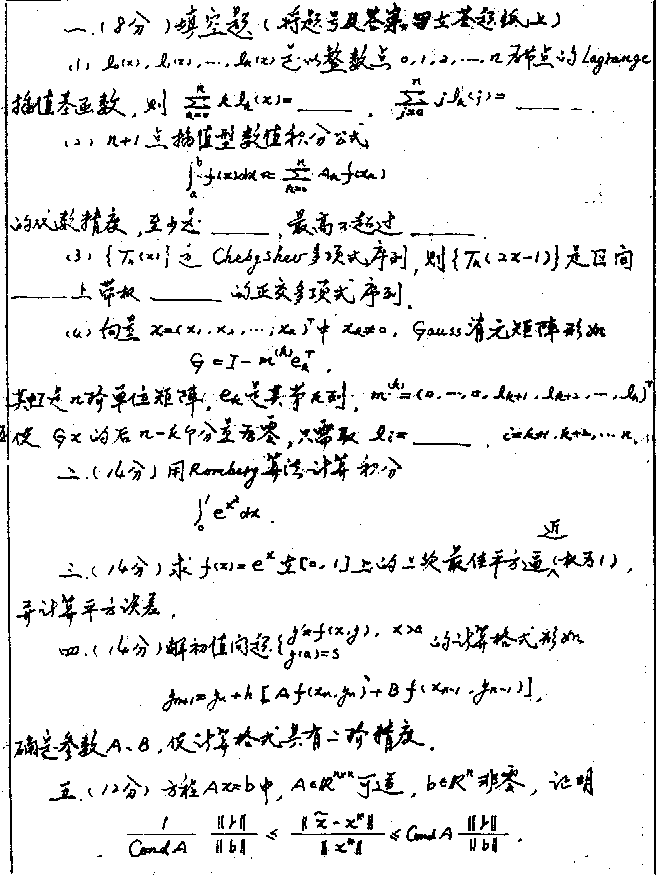 一.(8分)填空题(将题号及答案写在答题纸上)
(1) l₀(x), l₁(x), …, lₙ(x) 是以整数点 0, 1, 2, …, n 为节点的 Lagrange
插值基函数, 则 \sum_{k=0}^{n} k lₖ(x) = ____ , \sum_{j=0}^{n} j lₖ(j) = ____ .
(2) n+1 点插值型数值积分公式
\int_a^b f(x)dx ≈ \sum_{k=0}^{n} Aₖ f(xₖ)
的代数精度, 至少是 ____ , 最高不超过 ____
(3) {Tₙ(x)} 是 Chebyshev 多项式序列, 则 {Tₙ(2x-1)} 是区间
____ 上带权 ____ 的正交多项式序列.
(4) 向量 x=(x₁, x₂, …, xₙ)ᵀ 中 xₖ≠0, Gauss 消元矩阵形如
G = I - m⁽ᵏ⁾eₖᵀ,
其中I是n阶单位矩阵, eₖ是其第k列, m⁽ᵏ⁾=(0, …, 0, lₖ₊₁, lₖ₊₂, …, lₙ)ᵀ
使 Gx 的后 n-k 个分量为零, 只需取 lᵢ = ____ , i=k+1, k+2, … n.
二.(14分) 用Romberg算法计算积分
\int_0^1 e^{x²} dx.
三.(14分) 求 f(x)=eˣ 在[0, 1]上的二次最佳平方逼近(权为1),
并计算平方误差.
四.(14分) 解初值问题 { y'=f(x,y), x>a y(a)=s 的计算格式形如
yₙ₊₁=yₙ+h[A f(xₙ, yₙ)+B f(xₙ₋₁, yₙ₋₁)],
确定参数A、B, 使计算格式具有二阶精度.
五.(12分) 方程Ax=b中, A∈Rⁿˣⁿ可逆, b∈Rⁿ非零, 证明
\frac{1}{Cond A} \frac{||r||}{||b||} ≤ \frac{||x̃-x*||}{||x*||} ≤ Cond A \frac{||r||}{||b||}.